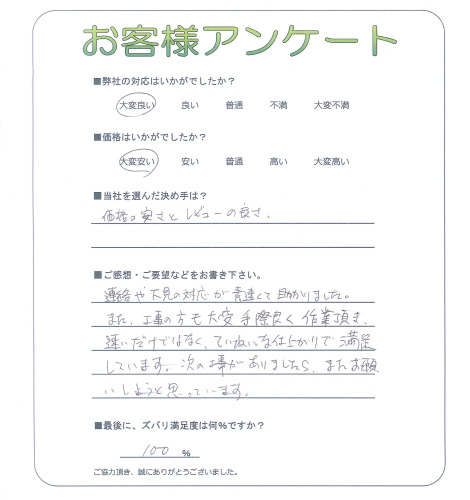 お客様アンケート
■弊社の対応はいかがでしたか？
大変良い 良い 普通 不満 大変不満
■価格はいかがでしたか？
大変安い 安い 普通 高い 大変高い
■当社を選んだ決め手は？
価格の安さとレビューの良さ、
■ご感想・ご要望などをお書き下さい。
連絡や下見の対応が素速くて助かりました。
また、工事の方も大変手際良く作業頂き、
速いだけではなく、ていねいな仕上がりで満足
しています。次の工事がありましたら、またお願
いしようと思っています。
■最後に、ズバリ満足度は何%ですか？
100 %
ご協力頂き、誠にありがとうございました。